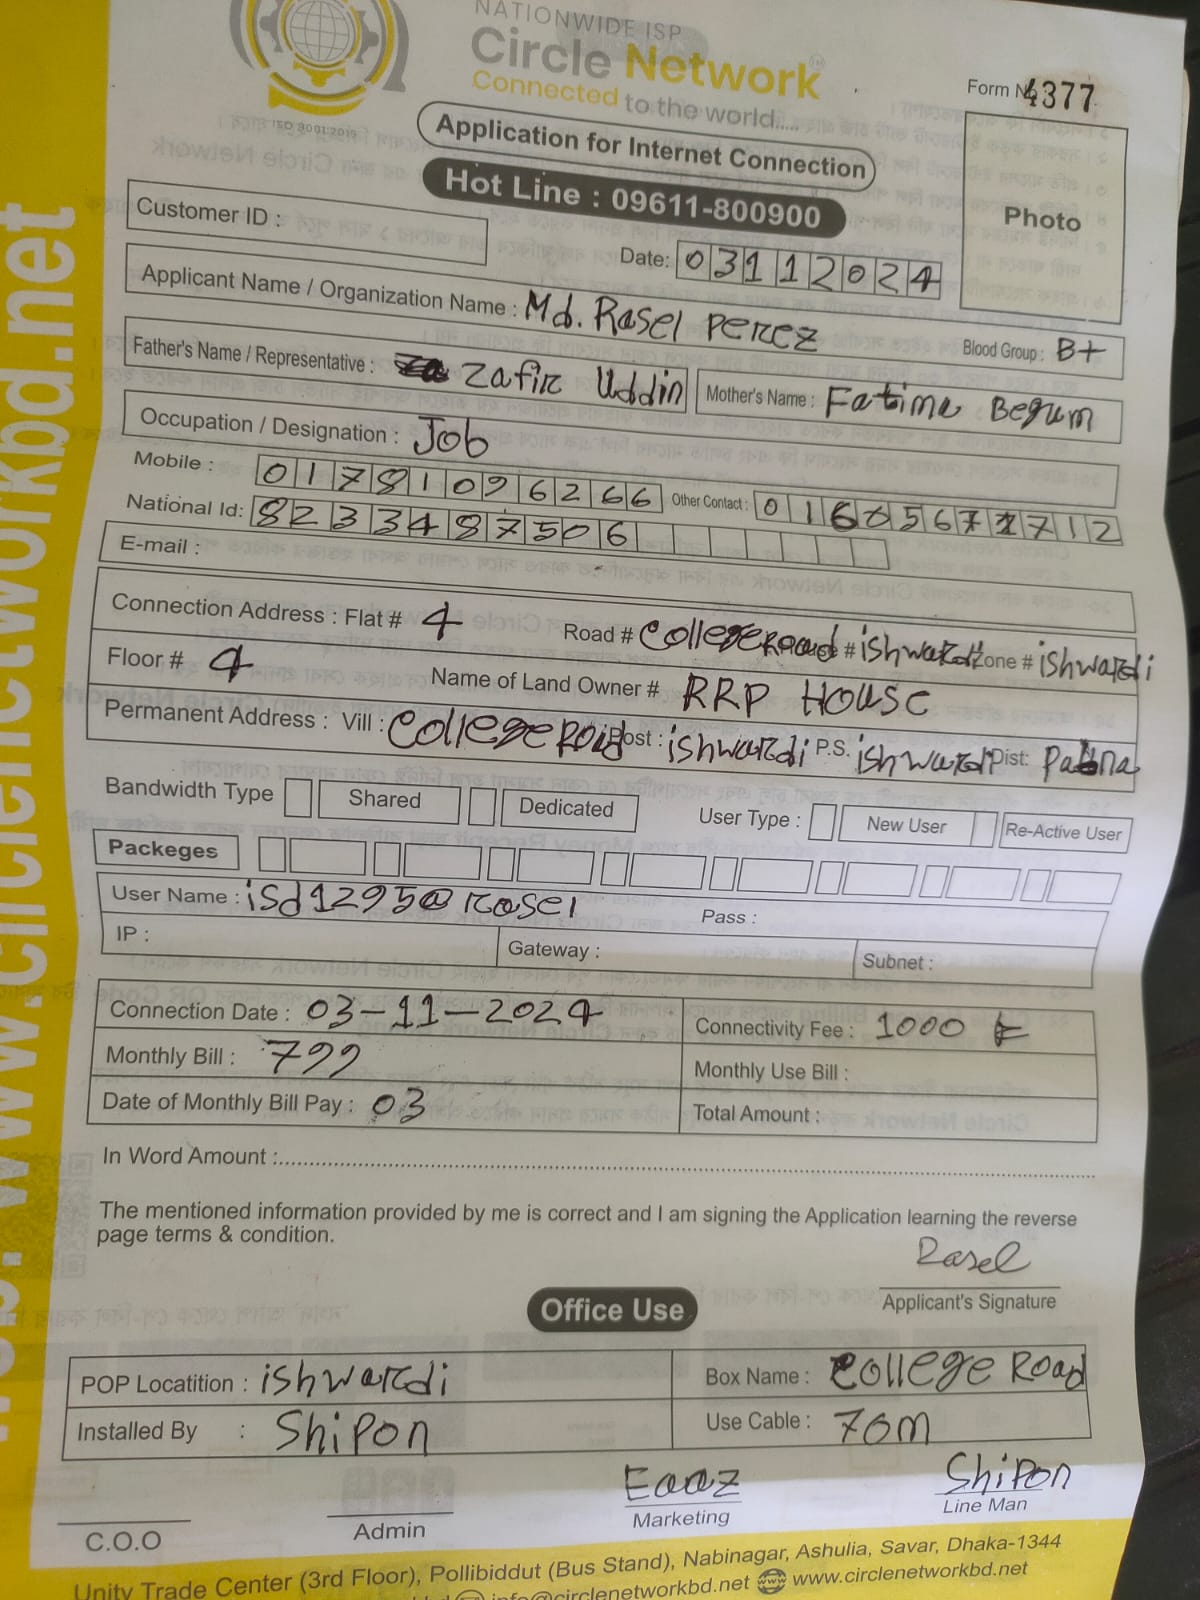 NATIONWIDE ISP
Circle Network
Connected to the world.....
ISO 9001:2015
Form No 4377
Application for Internet Connection
Hot Line : 09611-800900
Photo
Customer ID :
Date: 03112024
Applicant Name / Organization Name : Md. Rasel Perez
Blood Group : B+
Father's Name / Representative : Zafir Uddin Mother's Name : Fatima Begum
Occupation / Designation : Job
Mobile : 01781096266 Other Contact : 01605671712
National Id: 8233487506
E-mail :
Connection Address : Flat # 4 Road # College Road # ishwardi Zone # ishwardi
Floor # 4 Name of Land Owner # RRP House
Permanent Address : Vill : College Road Post : ishwardi P.S. ishwardi Dist: Pabna
Bandwidth Type Shared Dedicated User Type : New User Re-Active User
Packeges
User Name : isd1295@rasel Pass :
IP : Gateway : Subnet :
Connection Date : 03-11-2024 Connectivity Fee : 1000
Monthly Bill : 799 Monthly Use Bill :
Date of Monthly Bill Pay : 03 Total Amount :
In Word Amount :
The mentioned information provided by me is correct and I am signing the Application learning the reverse
page terms & condition.
Rasel
Applicant's Signature
Office Use
POP Locatition : ishwardi Box Name : College Road
Installed By : Shipon Use Cable : 70m
Eaaz Shipon
C.O.O Admin Marketing Line Man
Unity Trade Center (3rd Floor), Pollibiddut (Bus Stand), Nabinagar, Ashulia, Savar, Dhaka-1344
info@circlenetworkbd.net www.circlenetworkbd.net
www.circlenetworkbd.net